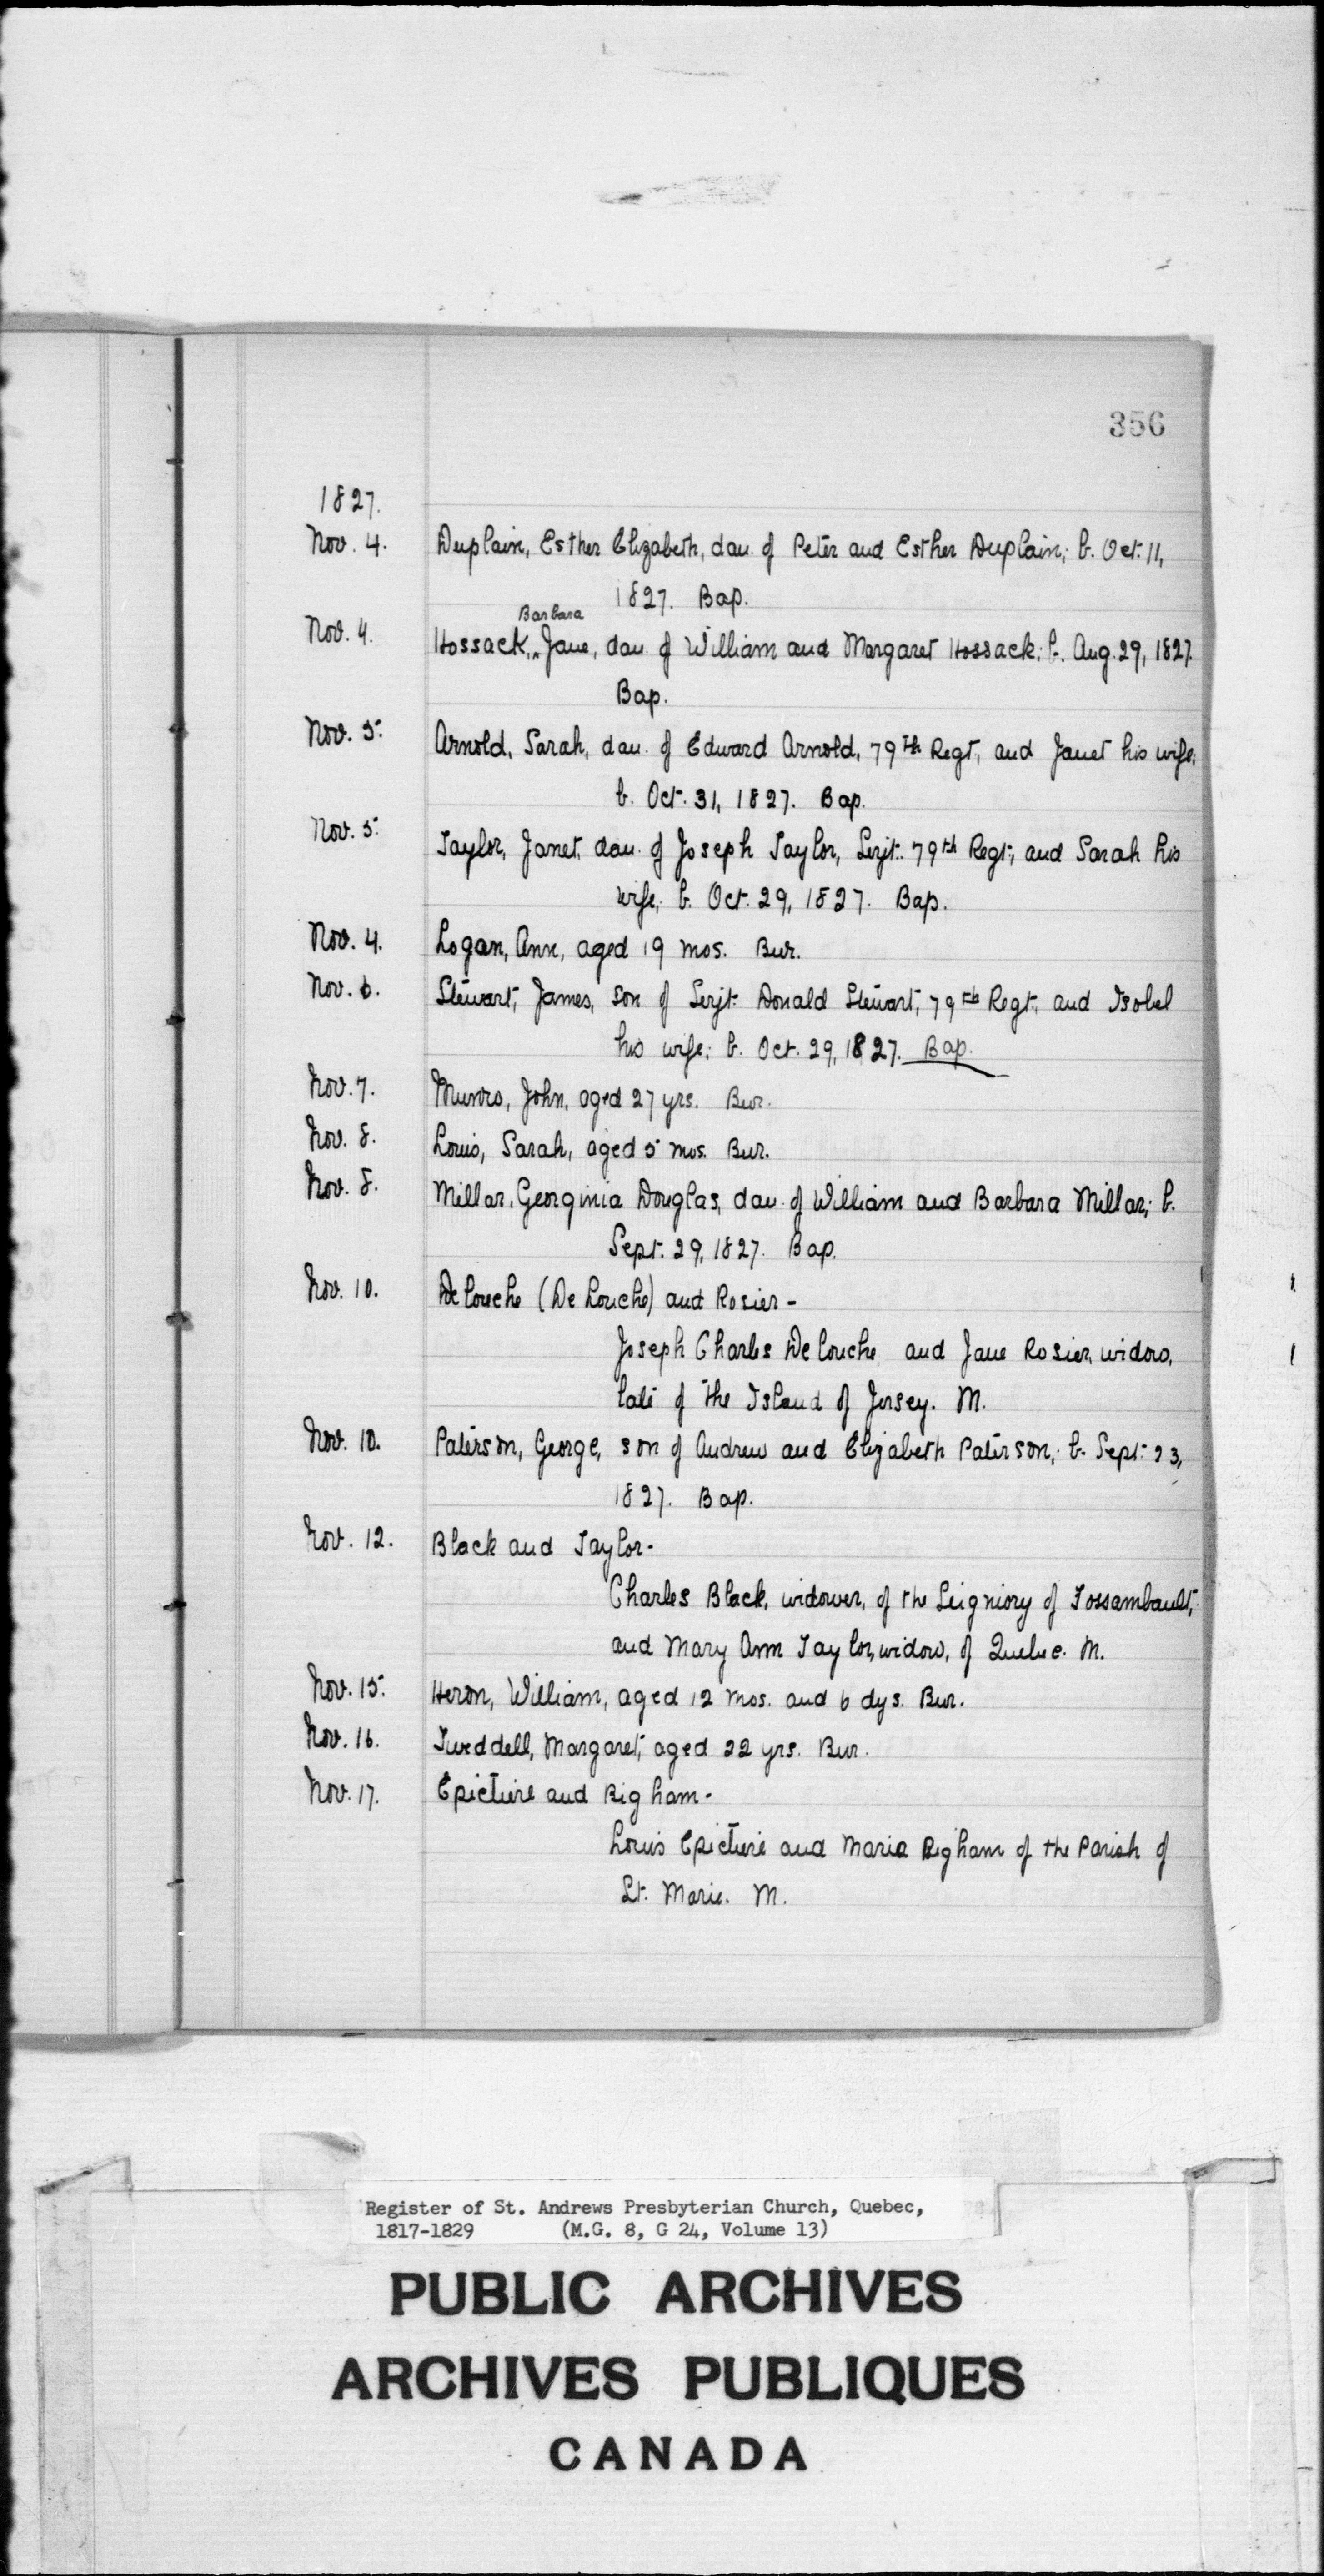 356
1827.
Nov. 4. Duplain, Esther Elizabeth, dau. of Peter and Esther Duplain; b. Oct. 11,
1827. Bap.
Barbara
Nov. 4. Hossack, ^ Jane, dau. of William and Margaret Hossack; b. Aug. 29, 1827.
Bap.
Nov. 5. Arnold, Sarah, dau. of Edward Arnold, 79th Regt., and Janet his wife;
b. Oct. 31, 1827. Bap.
Nov. 5. Taylor, Janet, dau. of Joseph Taylor, Serjt. 79th Regt., and Sarah his
wife; b. Oct. 29, 1827. Bap.
Nov. 4. Logan, Ann, aged 19 mos. Bur.
Nov. 6. Stewart, James, son of Serjt. Donald Stewart, 79th Regt., and Isobel
his wife; b. Oct. 29, 1827. Bap.
Nov. 7. Munro, John, aged 27 yrs. Bur.
Nov. 8. Louis, Sarah, aged 5 mos. Bur.
Nov. 8. Millar, Georginia Douglas, dau. of William and Barbara Millar; b.
Sept. 29, 1827. Bap.
Nov. 10. Delouche (De Louche) and Rosier -
Joseph Charles Delouche and Jane Rosier, widow,
late of the Island of Jersey. M.
Nov. 10. Paterson, George, son of Andrew and Elizabeth Paterson; b. Sept. 23,
1827. Bap.
Nov. 12. Black and Taylor -
Charles Black, widower, of the Seigniory of Fossambault,
and Mary Ann Taylor, widow, of Quebec. M.
Nov. 15. Heron, William, aged 12 mos. and 6 dys. Bur.
Nov. 16. Tweddell, Margaret, aged 22 yrs. Bur.
Nov. 17. Epicture and Bigham -
Louis Epicture and Maria Bigham of the Parish of
St. Marie. M.
Register of St. Andrews Presbyterian Church, Quebec,
1817-1829 (M.G. 8, G 24, Volume 13)
PUBLIC ARCHIVES
ARCHIVES PUBLIQUES
CANADA